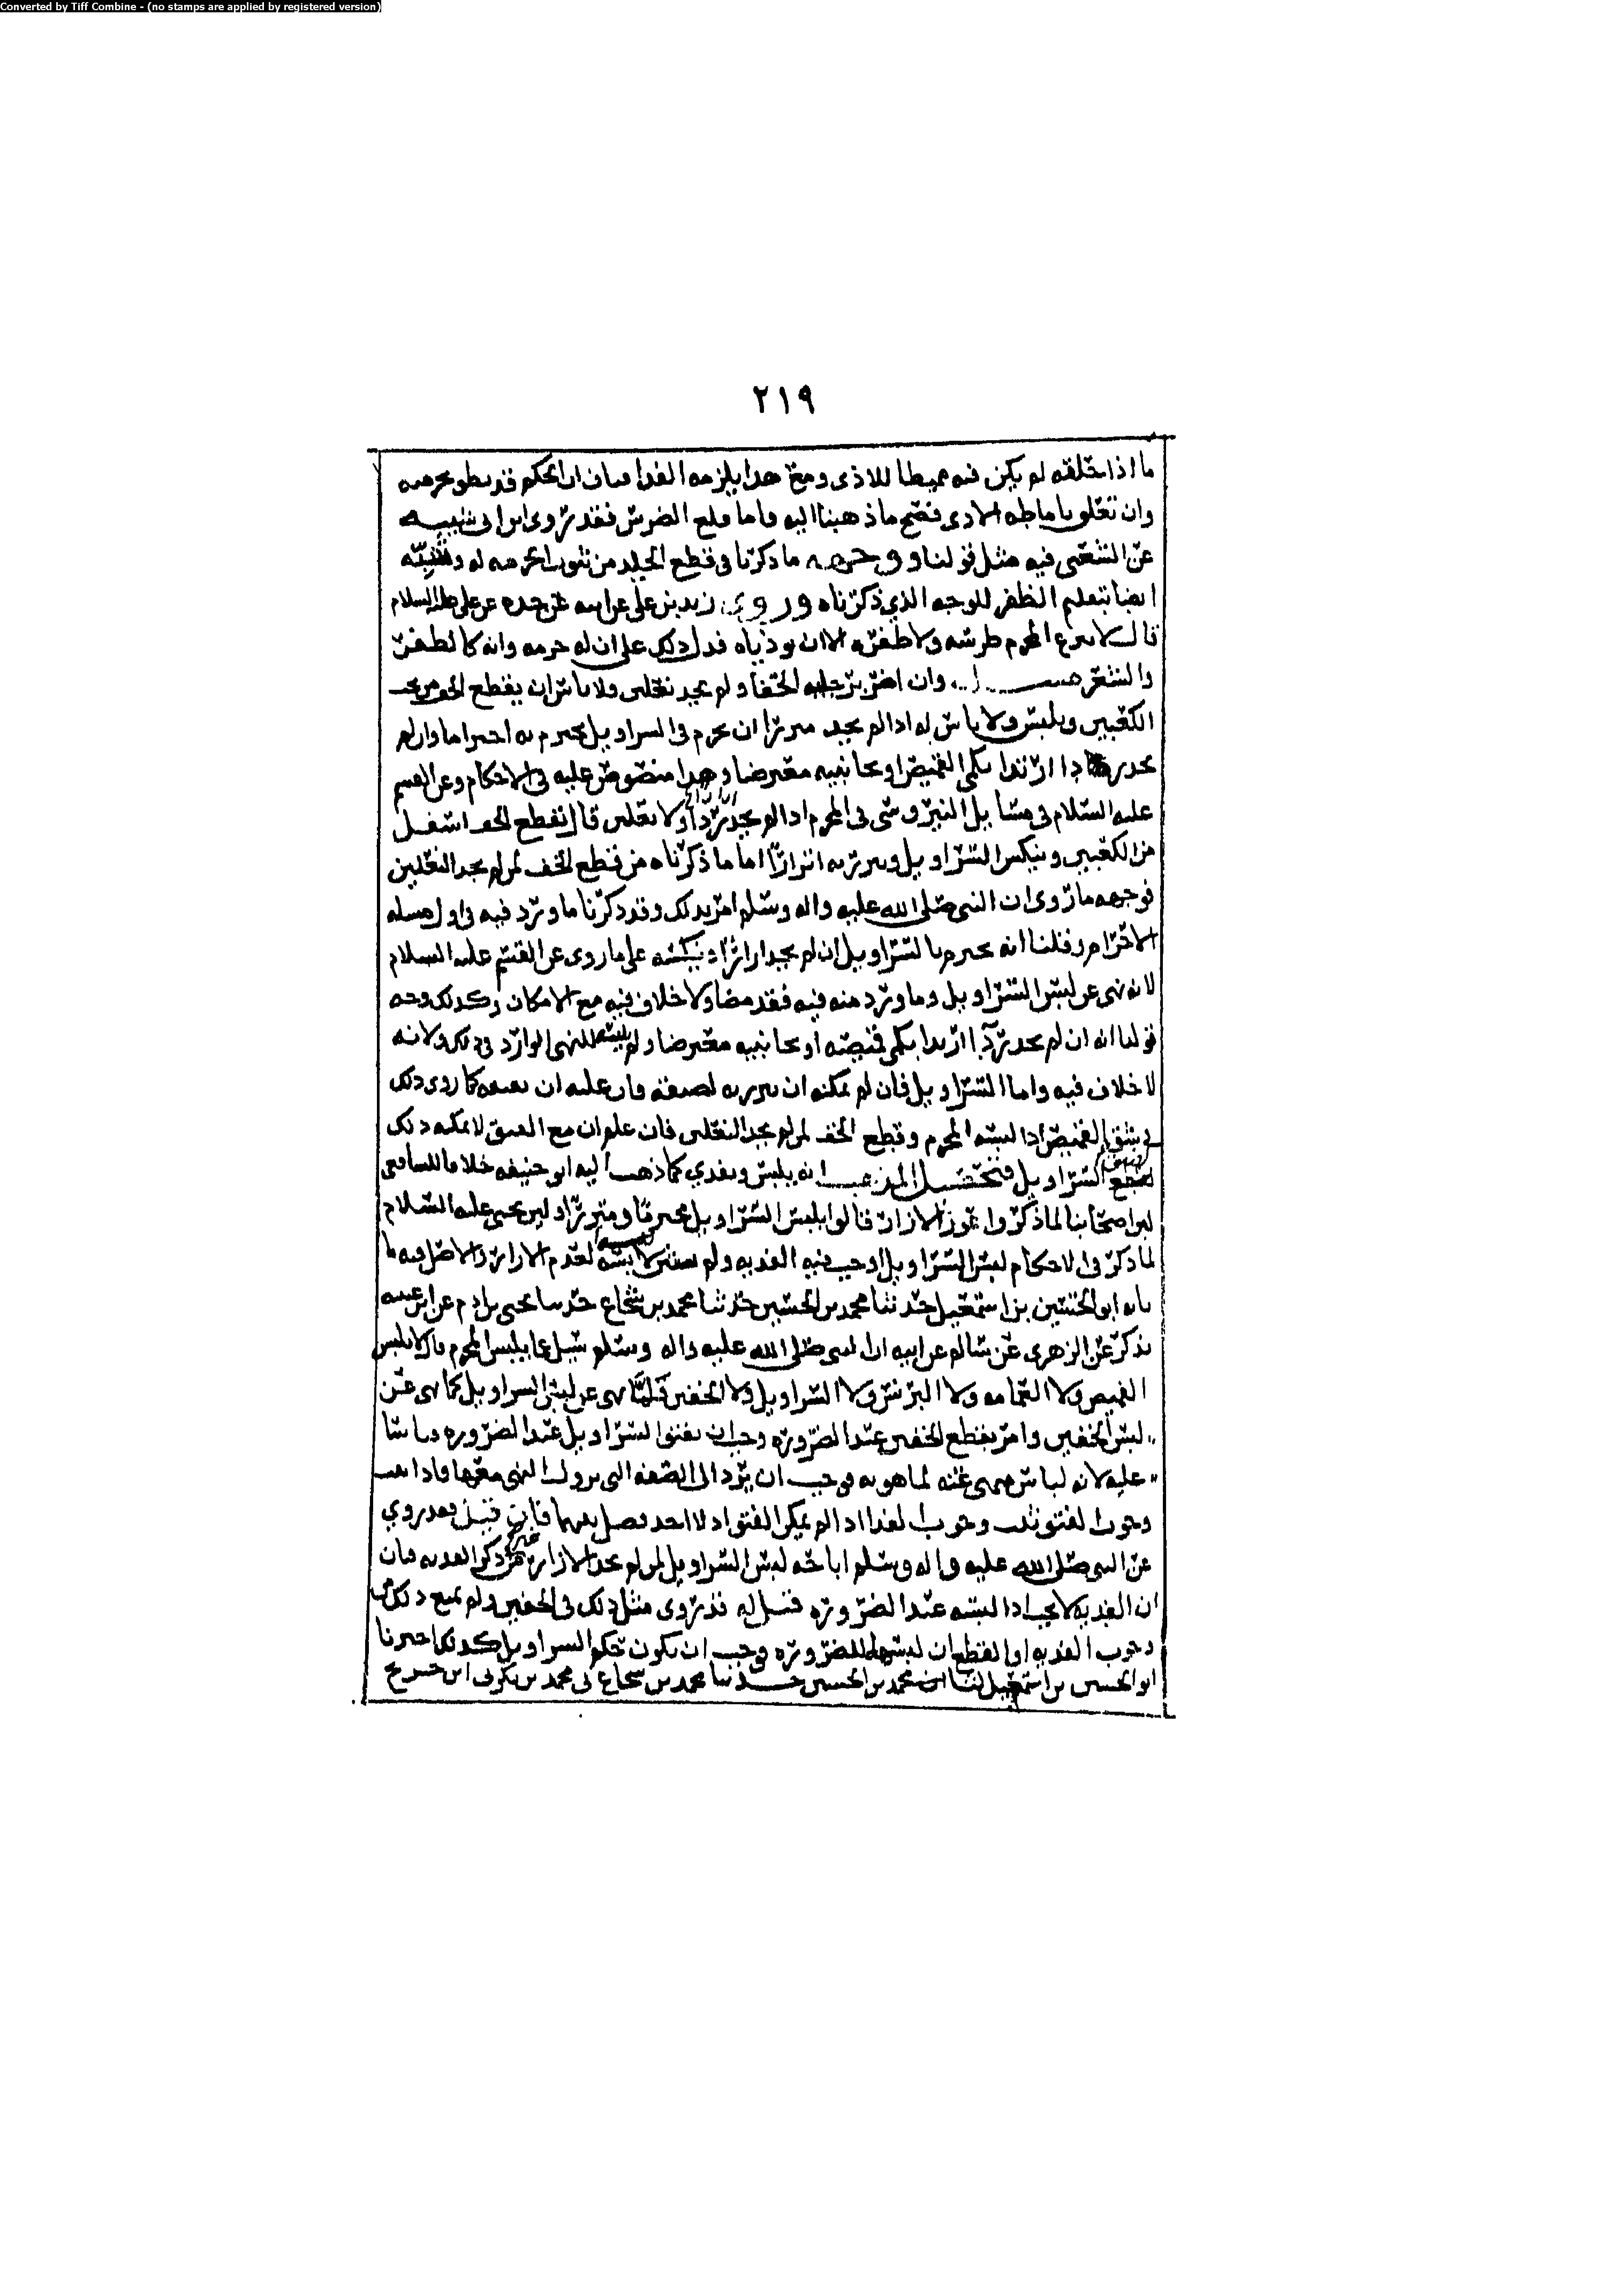 Converted by Tiff Combine - (no stamps are applied by registered version)
٢١٩
ما اذا حلقه لم يكن فيه مميطا للاذى ومع هذا يلزمه الفدا فبان ان الحكم قد تعلق بحرمته
وان تعلق باماطه الاذى فصح ما ذهبنا اليه واما قلع الضرس فقد روى ابن ابى شيبه
عن الشعبى فيه مثل قولنا ووجهه ما ذكرنا فى قطع الجلد من ثبوت الحرمه له
ايضا بتعليم الظفر للوجه الذي ذكرناه وروى زيد بن على عن ابيه عن جده عن على عليه السلام
قال لا ينزع المحرم ضرسه ولا ظفره الا ان يوذياه فدل ذلك على ان له حرمه وانه كالظفر
والشعر وان اضر برجليه الحفا ولم يجد نعلين ولا باس ان يقطع الخفين من تحت
الكعبين ويلبس ولا باس له اذا لم يجد ميزرا ان يحرم فى السراويل يحتزم به احتزاما وان لم
يجد ردا ارتدا بكمى القميص او بجانبيه معترضا وهذا منصوص عليه فى الاحكام وعن القسم
عليه السلام فى مسايل النيروسى فى المحرم اذا لم يجد ردا ولا نعلين قال يقطع الخف اسفل
من الكعبين وينكس السراويل ويتزر به اتزارا اما ما ذكرناه من قطع الخف لمن لم يجد النعلين
فوجهه ما روى ان النبى صلى الله عليه واله وسلم امر بذلك وقد ذكرنا ما ورد فيه فى اول مسله
الاحرام وقلنا انه يحتزم بالسراويل ان لم يجد ازارا وينكسه على ما روى عن القسم عليه السلام
لانه نهى عن لبس السراويل وما ورد منه فيه فقد مضا ولا خلاف فيه مع الامكان وكذلك وجه
قولنا انه ان لم يجد ردآ ارتدا بكمى قميصه او بجانبيه معترضا ولم يلبسه للنهى الوارد فى ذلك ولانه
لا خلاف فيه واما السراويل فان لم يمكنه ان يتزر به لضيقه فان عليه ان يفتقه كما روى ذلك
فى شق القميص اذا لبسه المحرم وقطع الخف لمن لم يجد النعلين فان علم ان مع الفتق لا يمكنه ذلك
السراويل فتحصيل المذهب انه يلبس ويفدي كما ذهب اليه ابو حنيفه خلافا للشافعى
لان اصحابنا لما ذكروا عوز الازار قالوا يلبس السراويل محتزما ومتزرا ولان يحيى عليه السلام
لما ذكر فى الاحكام لبس السراويل اوجب فيه الفديه ولم يستثن لابسه لعدم الازار والاصل فيه ما
نا به ابو الحسين بن اسمعيل حدثنا محمد بن الحسين حدثنا محمد بن شجاع حدثنا يحيى بن ادم عن ابن عيينه
يذكر عن الزهرى عن سالم عن ابيه ان النبى صلى الله عليه واله وسلم سيل عما يلبس المحرم قال لا يلبس
القميص ولا العمامه ولا البرنس ولا السراويل ولا الخفين فلما نهى عن لبس السراويل كما نهى عن
لبس الخفين وامر بقطع الخفين عند الضروره وجب ان يفتق السراويل عند الضروره قياسا
عليه لانه لباس نهى عنه لما هو به فوجب ان يرد الى الصفه التى يزول النهى معها فاذا ثبت
وجوب الفتق ثبت وجوب الفدا اذا لم يمكن الفتق اذ لا احد فصل بينهما فان قيل فقد روي
عن النبى صلى الله عليه واله وسلم اباحه لبس السراويل لمن لم يجد الازار من غير ذكر الفديه فبان
ان الفديه لا تجب اذا لبسه عند الضروره قيل له قد روى مثل ذلك فى الخفين ولم يمنع ذلك من
وجوب الفديه او القطع ان لبسهما للضروره فوجب ان يكون حكم السراويل كذلك اخبرنا
ابو الحسين بن اسمعيل محمد بن الحسين حدثنا محمد بن شجاع نى محمد بن بكر نى ابن جريج